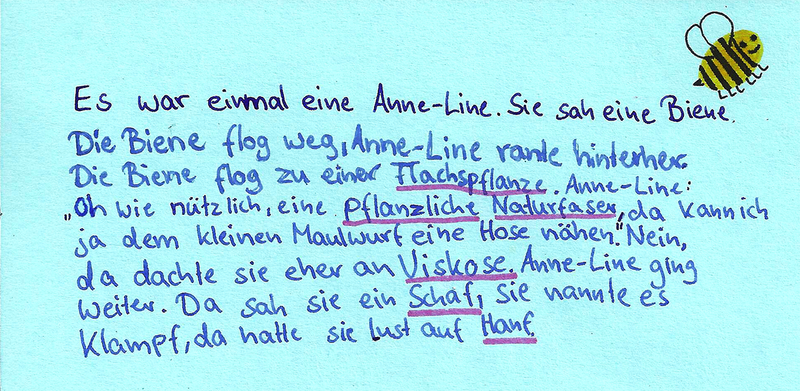 Es war einmal eine Anne-Line. Sie sah eine Biene.
Die Biene flog weg, Anne-Line rante hinterher.
Die Biene flog zu einer Flachspflanze. Anne-Line:
„Oh wie nützlich, eine pflanzliche Naturfaser, da kann ich
ja dem kleinen Maulwurf eine Hose nähen." Nein,
da dachte sie eher an Viskose. Anne-Line ging
weiter. Da sah sie ein Schaf, sie nannte es
Klampf, da hatte sie lust auf Hanf.